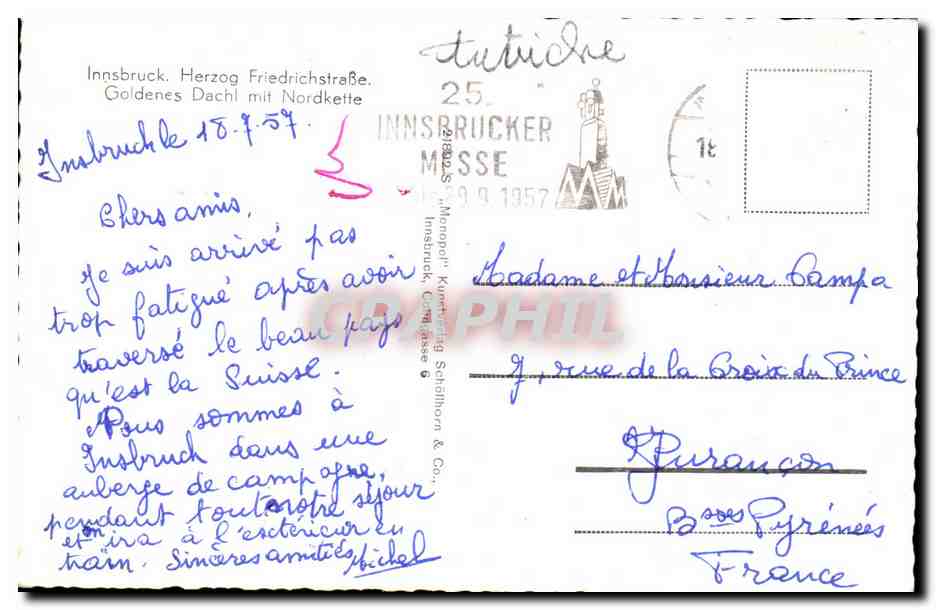 Innsbruck. Herzog Friedrichstraße.
Goldenes Dachl mit Nordkette
Autriche
25.
INNSBRUCKER
MESSE
29.9.1957
18
Insbruck le 18.7.57.
Chers amis,
Je suis arrivé pas
trop fatigué après avoir
traversé le beau pays
qu'est la Suisse.
Nous sommes à
Insbruch dans une
auberge de campagne,
pendant tout notre séjour
et on ira à l'extérieur en
train. Sincères amitiés Michel
21892 S
"Monopol" Kunstverlag Schöllhorn & Co.,
Innsbruck, Colingasse 6
Madame et Monsieur Campa
7, rue de la Croix du Prince
Jurançon
Bses Pyrénées
France
CPAPHIL